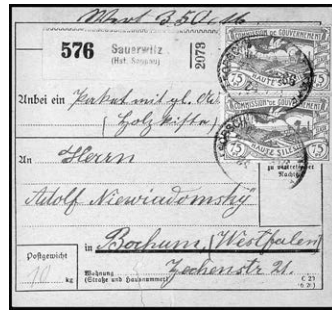 Wert 350 M
576 Sauerwitz
2073
COMMISSION DE GOUVERNEMENT
75 HAUTE SILÉSIE 75
COMMISSION DE GOUVERNEMENT
75 HAUTE SILÉSIE 75
Unbei ein Paket mit gl.
(Holzkiste)
An Herrn
Adolf Niewiadomsky
in Bochum, Westfalen
Postgewicht
10 kg
Wohnung
(Straße und Hausnummer)
Zechenstr 21.
C 27